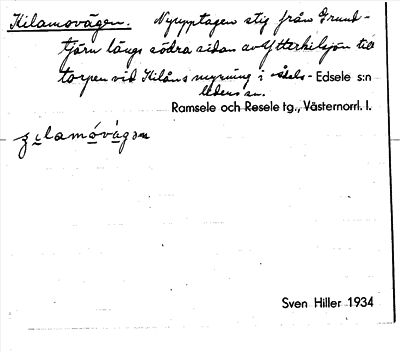 Kilamovägen. Nyupptagen stig från Grund-
tjärn längs södra sidan av Ytterkilsjön till
torpen vid Kilåns mynning i Ådals- Edsele s:n
Ramsele och Resele tg., Västernorrl. l.
Sven Hiller 1934